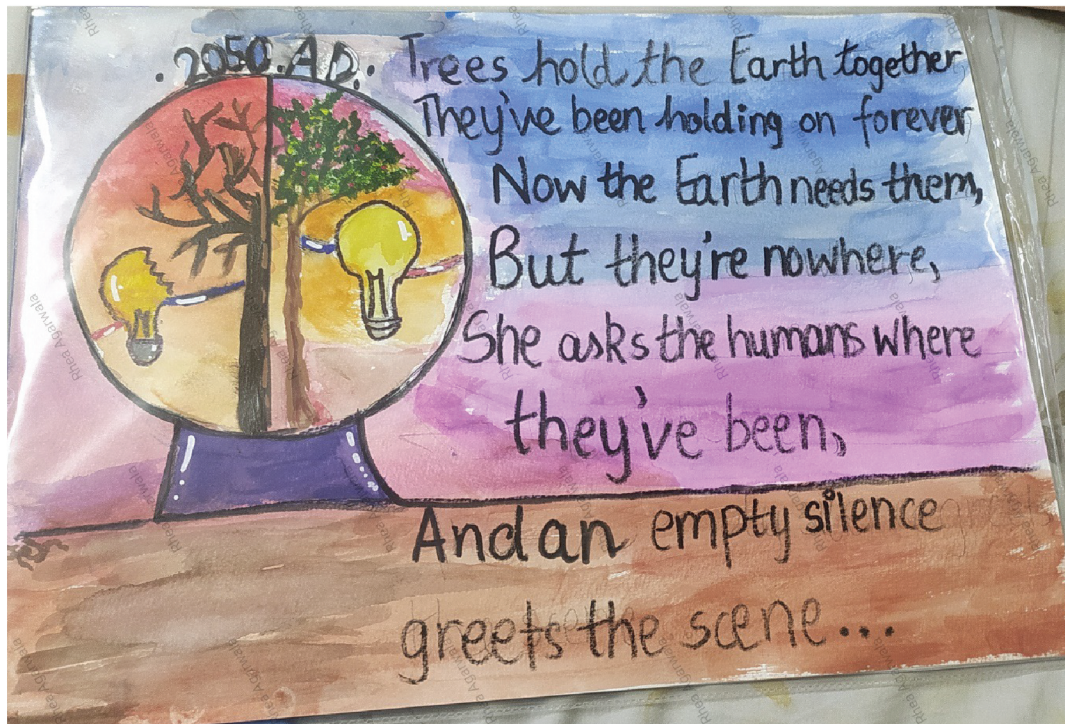 .2050.A.D.
Trees hold the Earth together
They've been holding on forever
Now the Earth needs them,
But they're nowhere,
She asks the humans where
they've been,
And an empty silence
greets the scene...
Rhea Agarwala